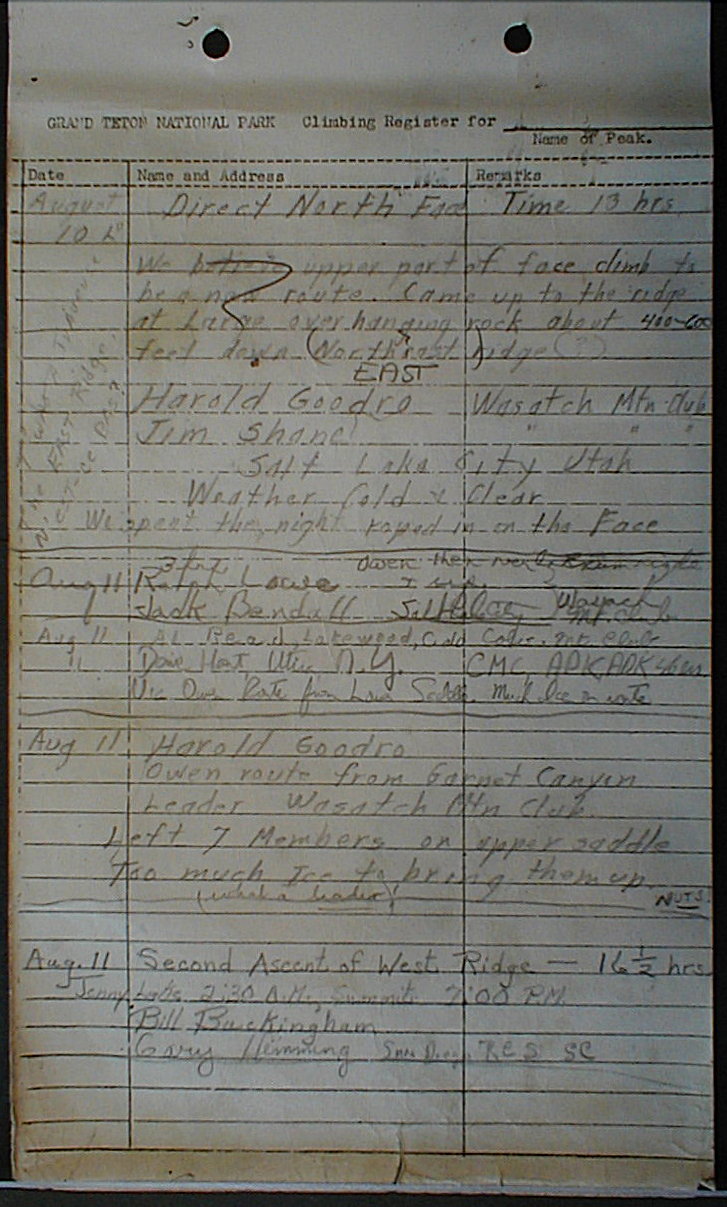 GRAND TETON NATIONAL PARK Climbing Register for
Name of Peak.
Date Name and Address Remarks
August Direct North Face Time 13 hrs
10
We believe upper part of face climb to
be a new route. Came up to the ridge
at Large overhanging rock about 400-600
feet down (North ridge (?)
EAST
Harold Goodro Wasatch Mtn Club
Jim Shane " " "
Salt Lake City Utah
Weather Cold & Clear
We spent the night roped in on the Face
EAST Ridge
Owen then
Aug 11 Ralph Lowe
Jack Bendall Mt. Club
Aug 11 Al Read, Lakewood, Colo Mt. Club
11 Dave N.Y. CMC, ADK
Via Owen Route from Lower Saddle. Much Ice on route
Aug 11 Harold Goodro
Owen route from Garnet Canyon
Leader Wasatch Mtn Club.
Left 7 Members on upper saddle
Too much Ice to bring them up.
(what a leader)! NUTS!
Aug. 11 Second Ascent of West Ridge — 16 1/2 hrs.
Jenny Lake 2:30 A.M., Summit 7:00 P.M.
Bill Buckingham
Gary Hemming San Diego, RCS SC